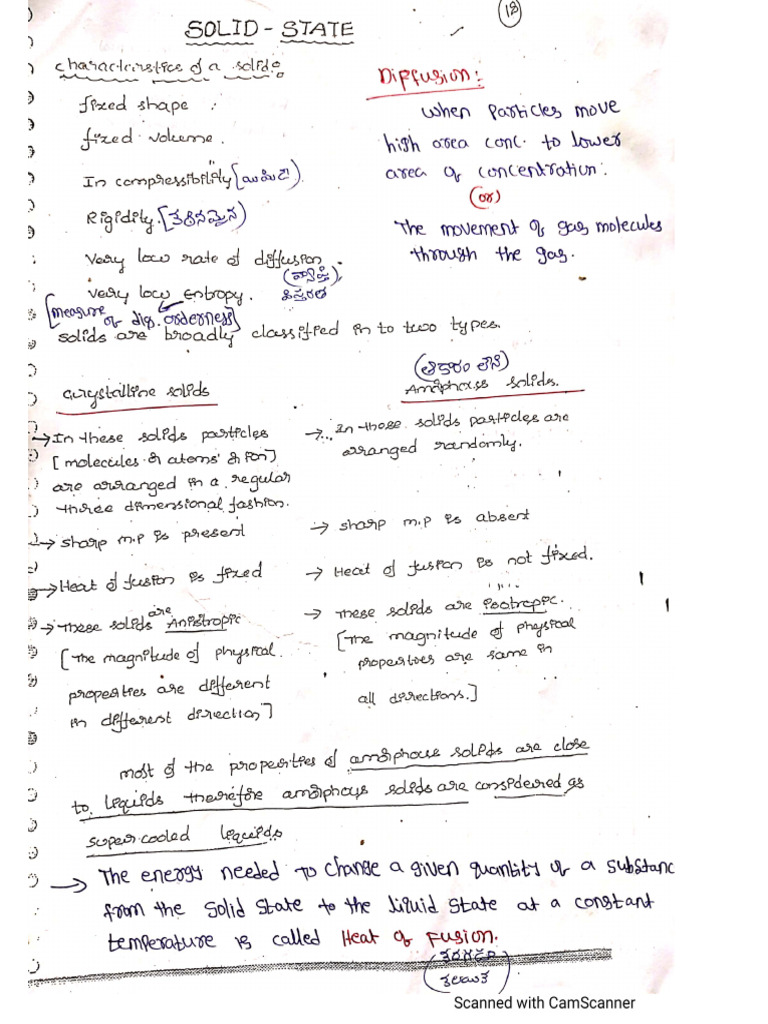 18
SOLID - STATE
Characteristics of a solids
fixed shape
fixed volume.
In compressibility
Rigidity. [కఠినమైన]
Very low rate of diffusion.
(వ్యాప్తి)
Very low entropy.
[measure
of dis.orderness]
Diffusion:
When Particles move
high area conc. to lower
area of concentration.
(or)
The movement of gas molecules
through the gas.
solids are broadly classified in to two types.
crystalline solids
→ In these solids particles
[molecules or atoms or ion]
are arranged in a regular
three dimensional fashion.
→ sharp m.p is present
→ Heat of fusion is fixed
→ These solids are Anistropic
[The magnitude of physical
properties are different
in different direction]
Amorphous solids.
→ In those solids particles are
arranged randomly.
→ sharp m.p is absent
→ Heat of fusion is not fixed.
→ These solids are Isotropic.
[The magnitude of physical
properties are same in
all directions.]
most of the properties of amorphous solids are close
to liquids therefore amorphous solids are considered as
super cooled liquids
→ The energy needed to change a given quantity of a substanc
from the solid state to the liquid state at a constant
temperature is called Heat of Fusion.
Scanned with CamScanner